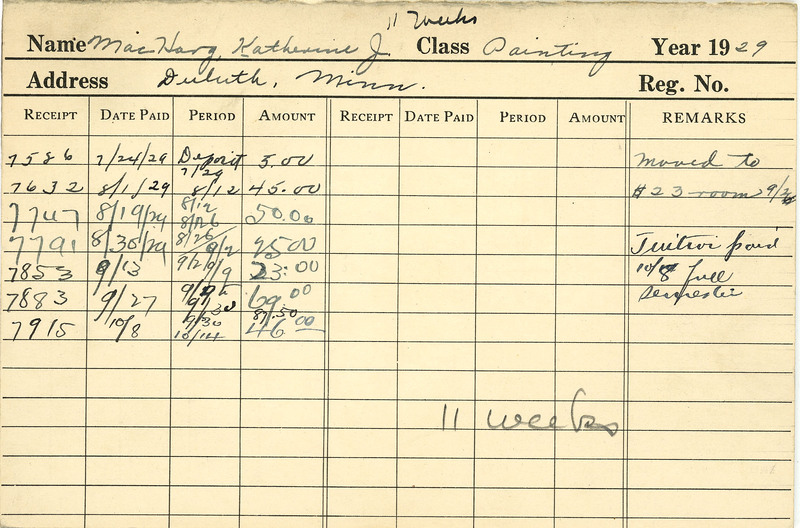 11 weeks
Name MacHarg, Katherine J. Class Painting Year 1929
Address Duluth, Minn. Reg. No.
RECEIPT DATE PAID PERIOD AMOUNT RECEIPT DATE PAID PERIOD AMOUNT REMARKS
7586 7/24/29 Deposit 5.00 moved to
7632 8/1/29 7/29 8/12 45.00 #23 room
7747 8/19/29 8/12 8/26 50.00
7791 8/30/29 8/26 9/2 25.00 Tuition paid
7853 9/13 9/2 9/9 23.00 10/8 full
7883 9/27 9/30 69.00 semester
87.50
7915 10/8 9/30 10/14 46.00
11 weeks